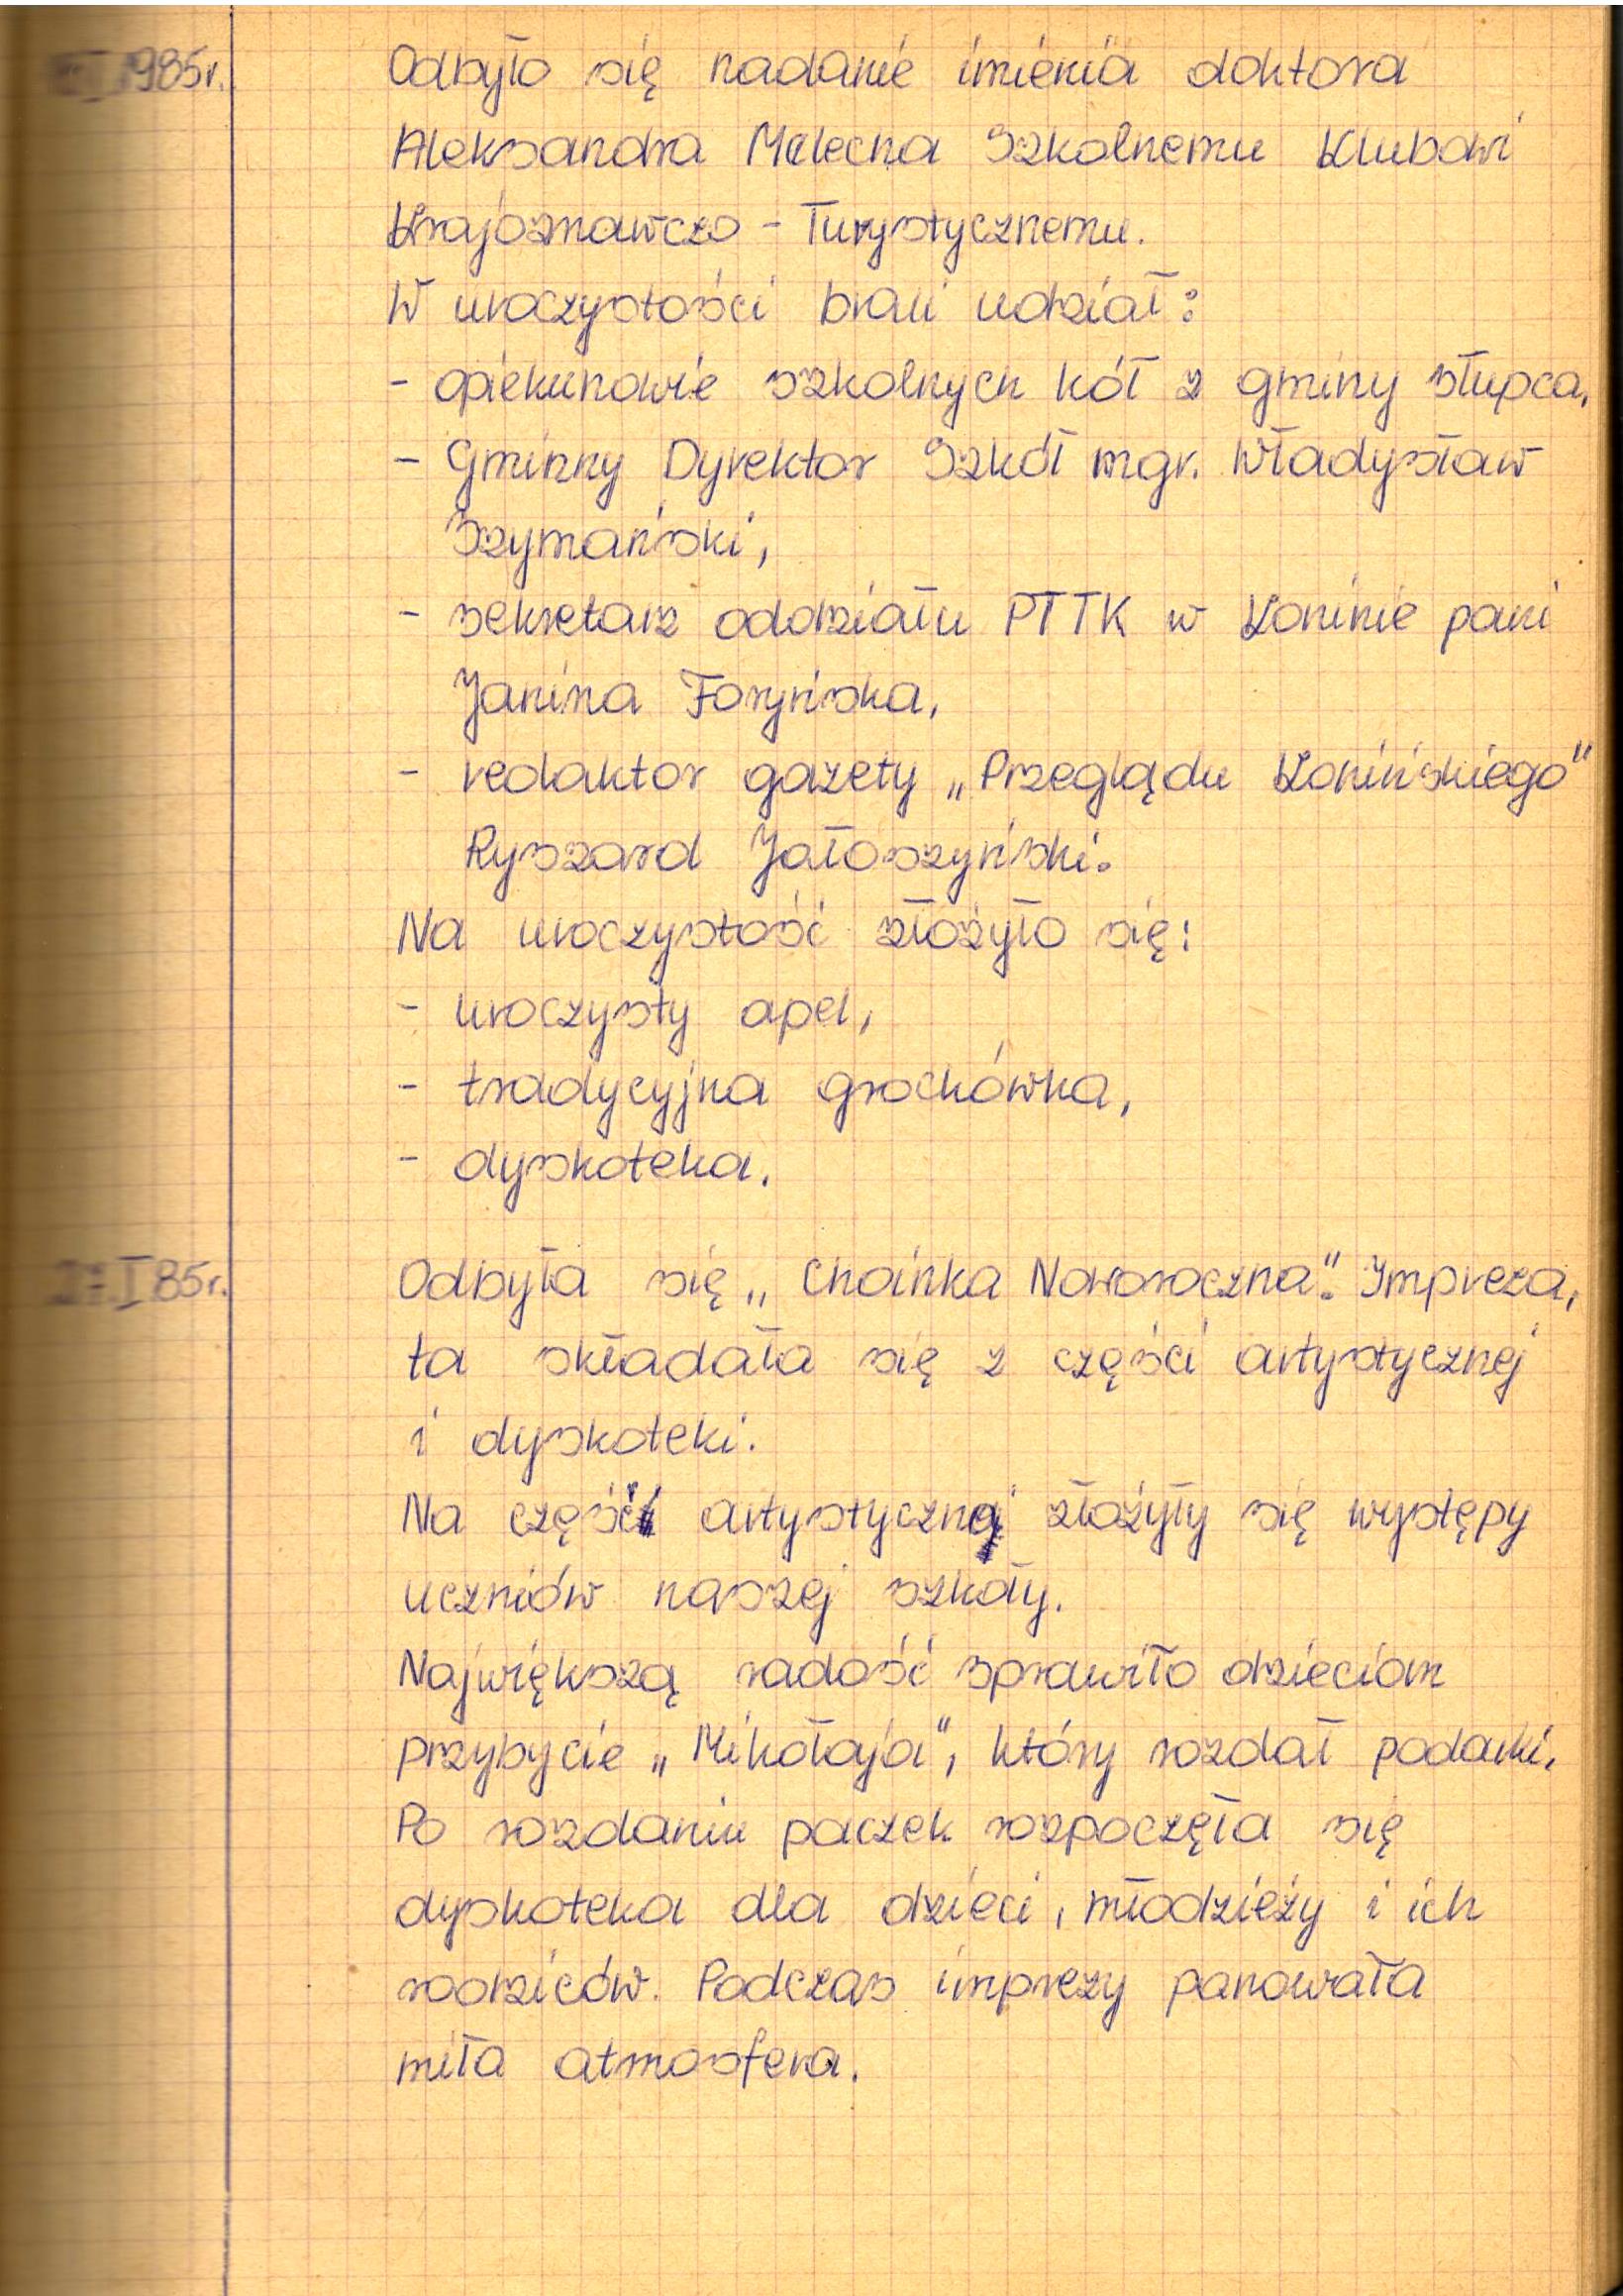 1985r.
Odbyło się nadanie imienia doktora
Aleksandra Melecna Szkolnemu Klubowi
Krajoznawczo - Turystycznemu.
W uroczystości brali udział:
- opiekunowie szkolnych kół z gminy Słupca,
- Gminny Dyrektor Szkół mgr. Władysław
Szymański,
- sekretarz oddziału PTTK w Koninie pani
Janina Foryńska,
- redaktor gazety „Przeglądu Konińskiego"
Ryszard Jałoszyński.
Na uroczystość złożyło się:
- uroczysty apel,
- tradycyjna grochówka,
- dyskoteka.
I 85r.
Odbyła się „Choinka Noworoczna". Impreza,
ta składała się z części artystycznej
i dyskoteki.
Na część artystyczną złożyły się występy
uczniów naszej szkoły.
Największą radość sprawiło dzieciom
przybycie „Mikołaja", który rozdał podarki.
Po rozdaniu paczek rozpoczęła się
dyskoteka dla dzieci, młodzieży i ich
rodziców. Podczas imprezy panowała
miła atmosfera.